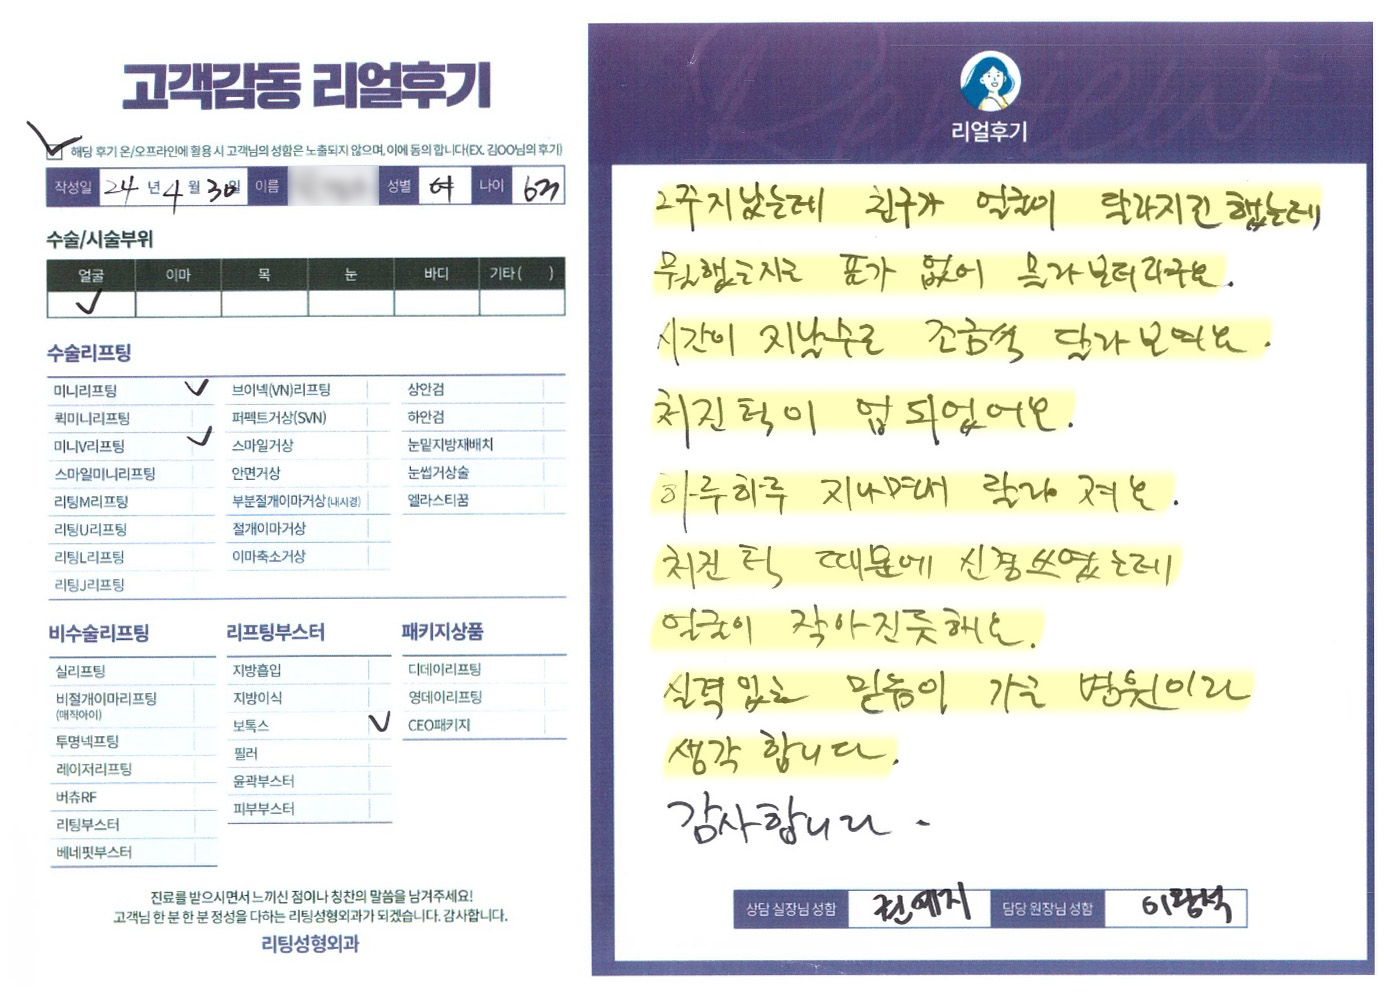 고객감동 리얼후기
해당 후기 온/오프라인에 활용 시 고객님의 성함은 노출되지 않으며, 이에 동의 합니다(EX. 김OO님의 후기)
작성일 24 년 4 월 30 일 이름 성별 여 나이 63
수술/시술부위
얼굴 이마 목 눈 바디 기타 ( )
수술리프팅
미니리프팅 브이넥(VN)리프팅 상안검
퀵미니리프팅 퍼펙트거상(SVN) 하안검
미니V리프팅 스마일거상 눈밑지방재배치
스마일미니리프팅 안면거상 눈썹거상술
리팅M리프팅 부분절개이마거상 (내시경) 엘라스티꿈
리팅U리프팅 절개이마거상
리팅L리프팅 이마축소거상
리팅J리프팅
비수술리프팅 리프팅부스터 패키지상품
실리프팅 지방흡입 디데이리프팅
비절개이마리프팅 지방이식 영데이리프팅
(매직아이) 보톡스 CEO패키지
투명넥프팅 필러
레이저리프팅 윤곽부스터
버츄RF 피부부스터
리팅부스터
베네핏부스터
진료를 받으시면서 느끼신 점이나 칭찬의 말씀을 남겨주세요!
고객님 한 분 한 분 정성을 다하는 리팅성형외과가 되겠습니다. 감사합니다.
리팅성형외과
리얼후기
2주 지났는데 친구가 얼굴이 달라지긴 했는데
뭐했는지는 표가 없어 몰라보더라구요.
시간이 지날수로 조금씩 달라보여요.
처진 턱이 업 되었어요.
하루하루 지나면서 달라져요.
처진 턱 때문에 신경쓰였는데
얼굴이 작아진듯해요.
실력있고 믿음이 가는 병원이라
생각합니다.
감사합니다.
상담 실장님 성함 전예지 담당 원장님 성함 이왕석